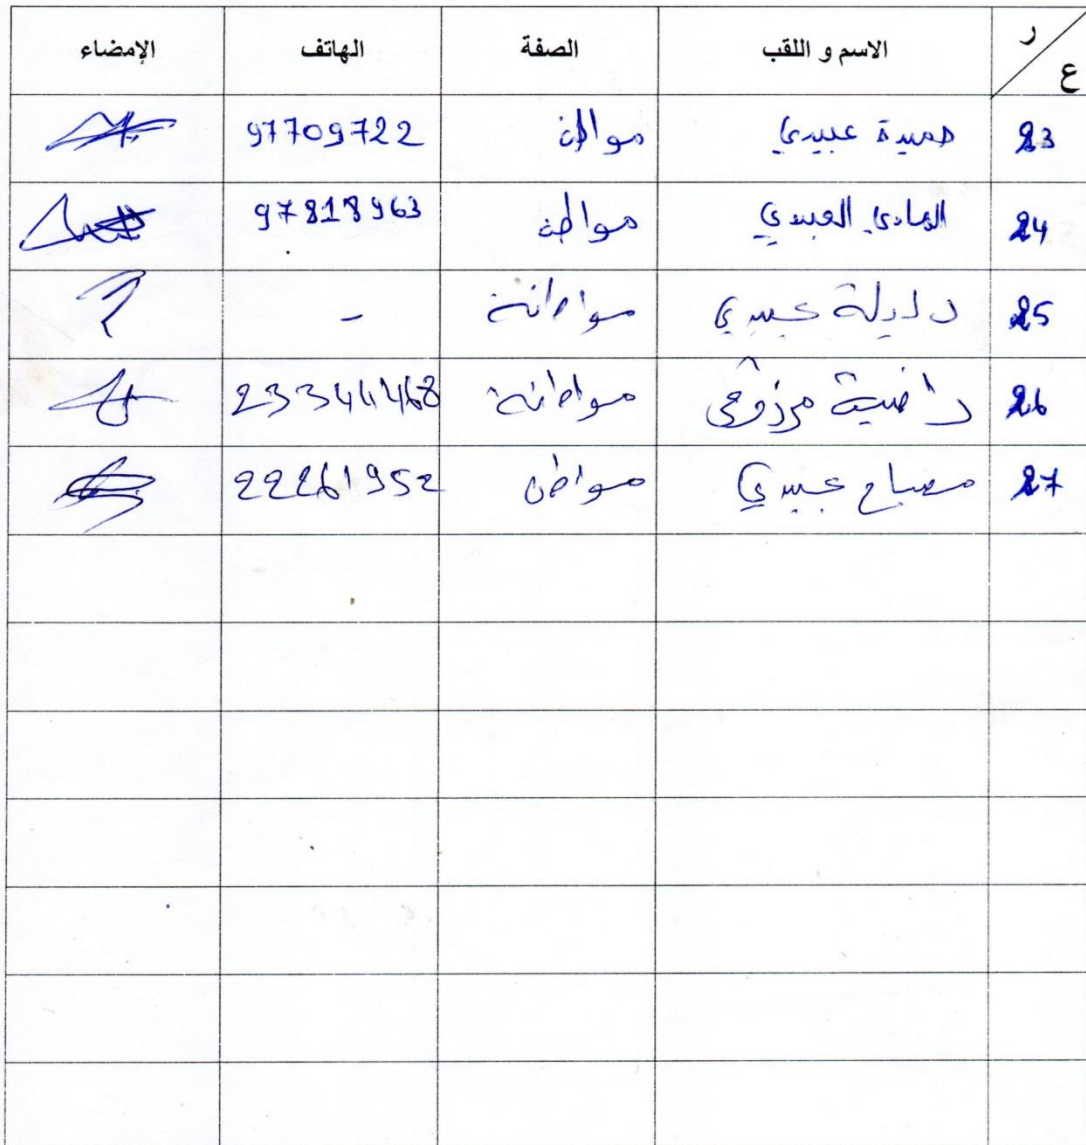 ر ع الاسم و اللقب الصفة الهاتف الإمضاء
23 حميدة عبيدي مواطن 97709722
24 الهادي العبيدي مواطن 97818963
25 دليلة عبيدي مواطنة -
26 راضية مرزوقي مواطنة
27 مصباح عبيدي مواطن 22261952